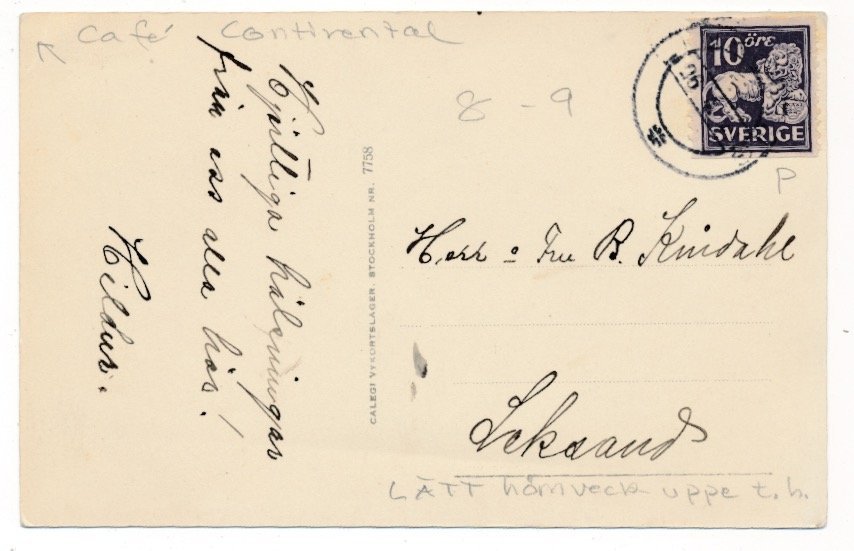 Café Continental
8 - 9
10 öre
SVERIGE
P
Hjärtliga hälsningar
från oss alla här!
Hildur.
CALEGI VYKORTSLAGER, STOCKHOLM NR. 7758
Herr o Fru B. Kindahl
Leksand
LÄTT hörnveck uppe t.h.